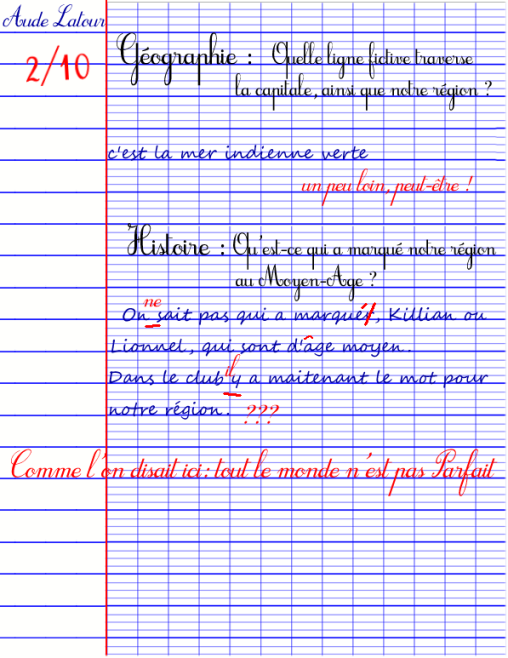 Aude Latour
2/10
Géographie : Quelle ligne fictive traverse
la capitale, ainsi que notre région ?
c'est la mer indienne verte
un peu loin, peut-être !
Histoire : Qu'est-ce qui a marqué notre région
au Moyen-Age ?
ne
On sait pas qui a marquér, Killian ou
Lionnel, qui sont d'âge moyen.
il
Dans le club y a maitenant le mot pour
notre région. ???
Comme l'on disait ici : tout le monde n'est pas Parfait